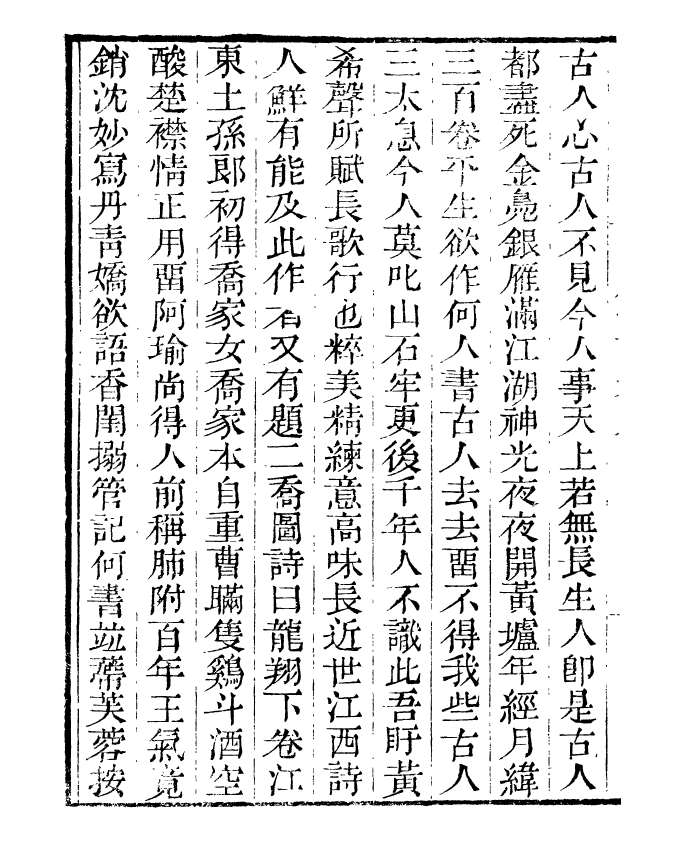 古人心古人不見今人事天上若無長生人卽是古人
都盡死金鳧銀雁滿江湖神光夜夜開黃壚年經月緯
三百卷平生欲作何人書古人去去畱不得我些古人
三太息今人莫叱山石牢更後千年人不識此吾盱黃
希聲所賦長歌行也粹美精練意高味長近世江西詩
人鮮有能及此作者又有題二喬圖詩曰龍翔下卷江
東土孫郞初得喬家女喬家本自重曹瞞隻鷄斗酒空
酸楚襟情正用畱阿瑜尚得人前稱肺附百年王氣竟
銷沈妙寫丹靑嬌欲語香閨搦管記何書竝蔕芙蓉按